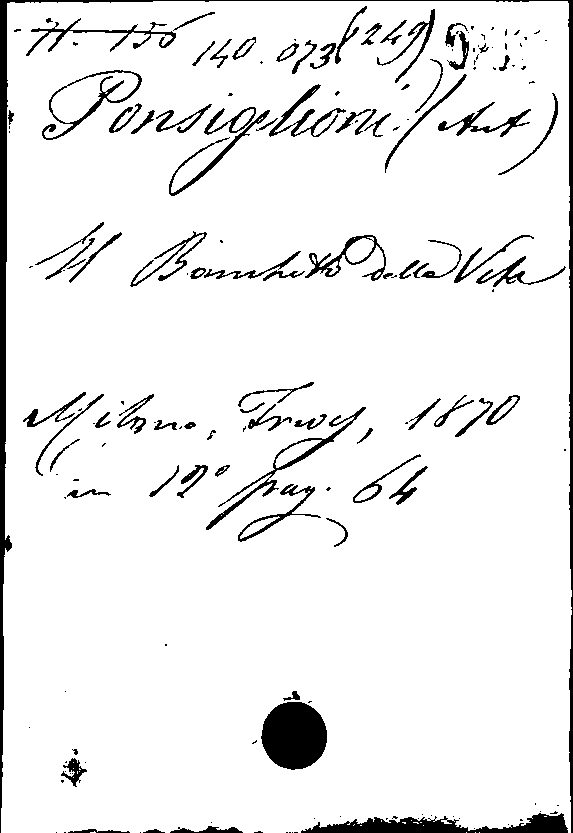 H. 156 140.073(249)
Ponsiglioni (Ant)
Il Banchetto della Vita
Milano, Trevy, 1870
in 12° pag. 64